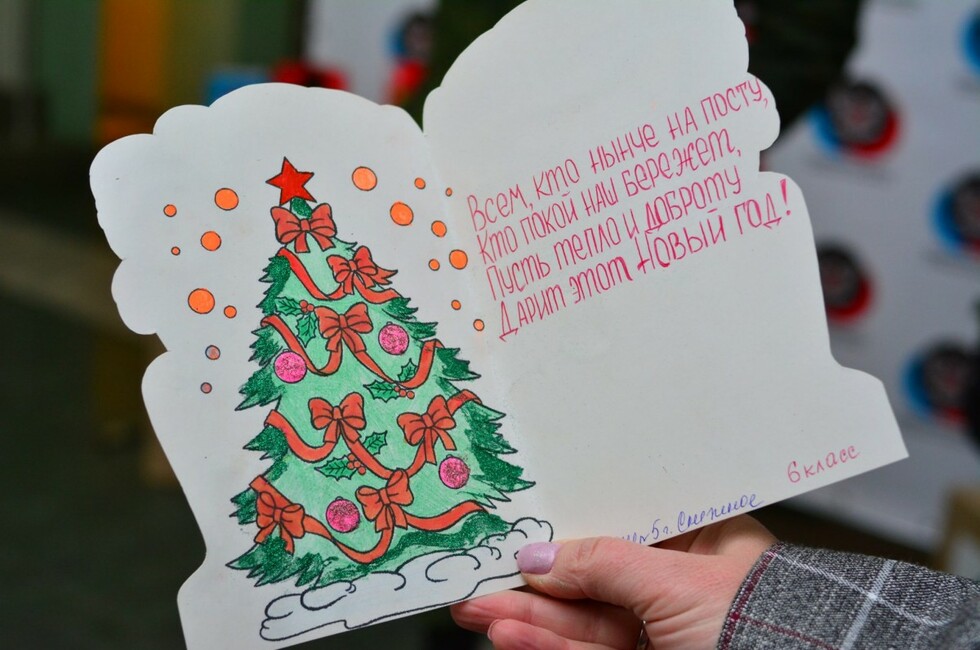 Всем, кто нынче на посту,
Кто покой наш бережет,
Пусть тепло и доброту
Дарит этот Новый год!
6 класс
№5 г. Снежное